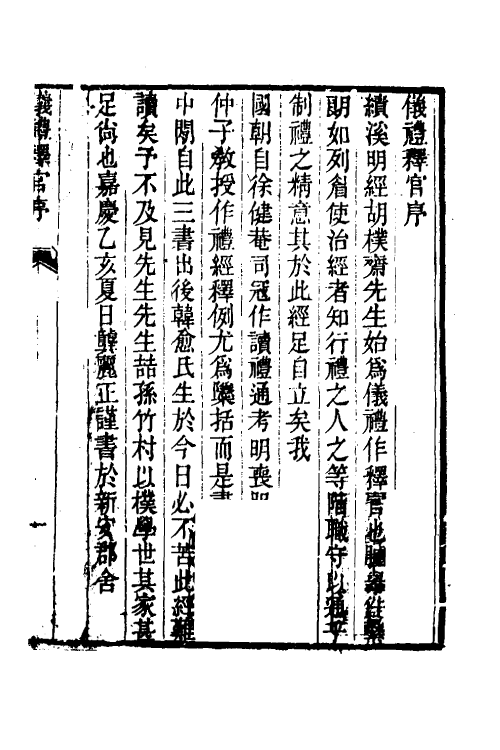 儀禮釋官序
績溪明經胡樸齋先生始為儀禮作釋官也臚舉
朗如列眉使治經者知行禮之人之等階職守以通乎
制禮之精意其於此經足自立矣我
國朝自徐健菴司冠作讀禮通考明喪服
仲子教授作禮經釋例尤為櫽括而是書
中間自此三書出後韓愈氏生於今日必不苦此經難
讀矣予不及見先生先生喆孫竹村以樸學世其家甚
足尙也嘉慶乙亥夏日龔麗正謹書於新安郡舍
儀禮釋官序
一